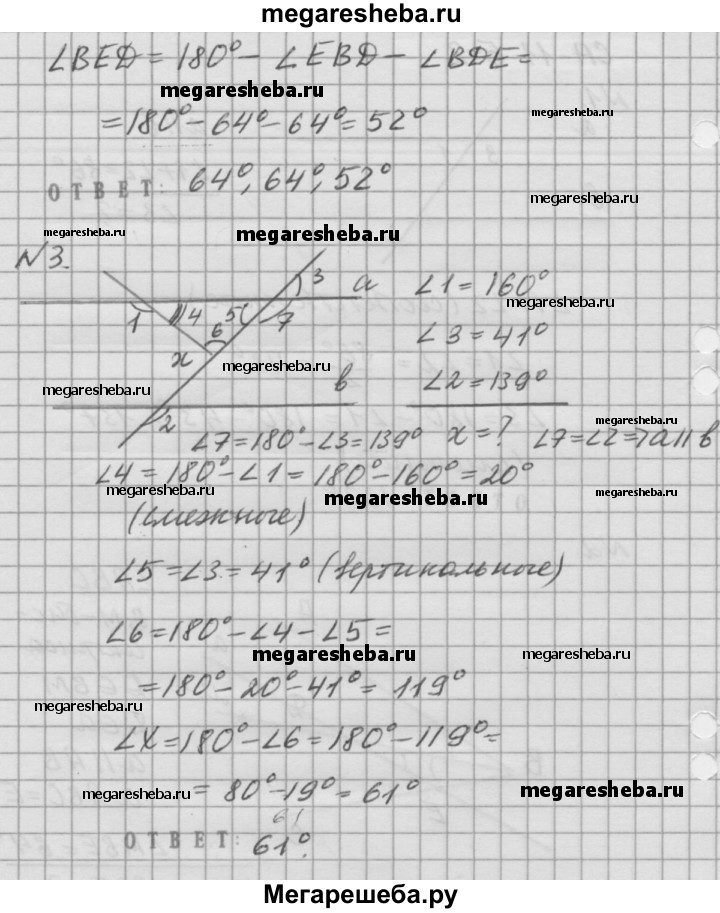 megaresheba.ru
∠BED = 180° - ∠EBD - ∠BDE =
megaresheba.ru
= 180° - 64° - 64° = 52°
megaresheba.ru
ОТВЕТ: 64°, 64°, 52°
megaresheba.ru
megaresheba.ru
megaresheba.ru
№3.
3 a ∠1 = 160°
megaresheba.ru
1 4 5 7
6
∠3 = 41°
x
megaresheba.ru
megaresheba.ru
в ∠2 = 139°
2
megaresheba.ru
∠7 = 180° - ∠3 = 139° x = ? ∠7 = ∠2 => a || в
∠4 = 180° - ∠1 = 180° - 160° = 20°
megaresheba.ru
megaresheba.ru
megaresheba.ru
(смежные)
∠5 = ∠3 = 41° (вертикальные)
∠6 = 180° - ∠4 - ∠5 =
megaresheba.ru
megaresheba.ru
= 180° - 20° - 41° = 119°
megaresheba.ru
∠X = 180° - ∠6 = 180° - 119° =
megaresheba.ru
= 80° - 19° = 61°
megaresheba.ru
61
ОТВЕТ: 61°.
Мегарешеба.ру